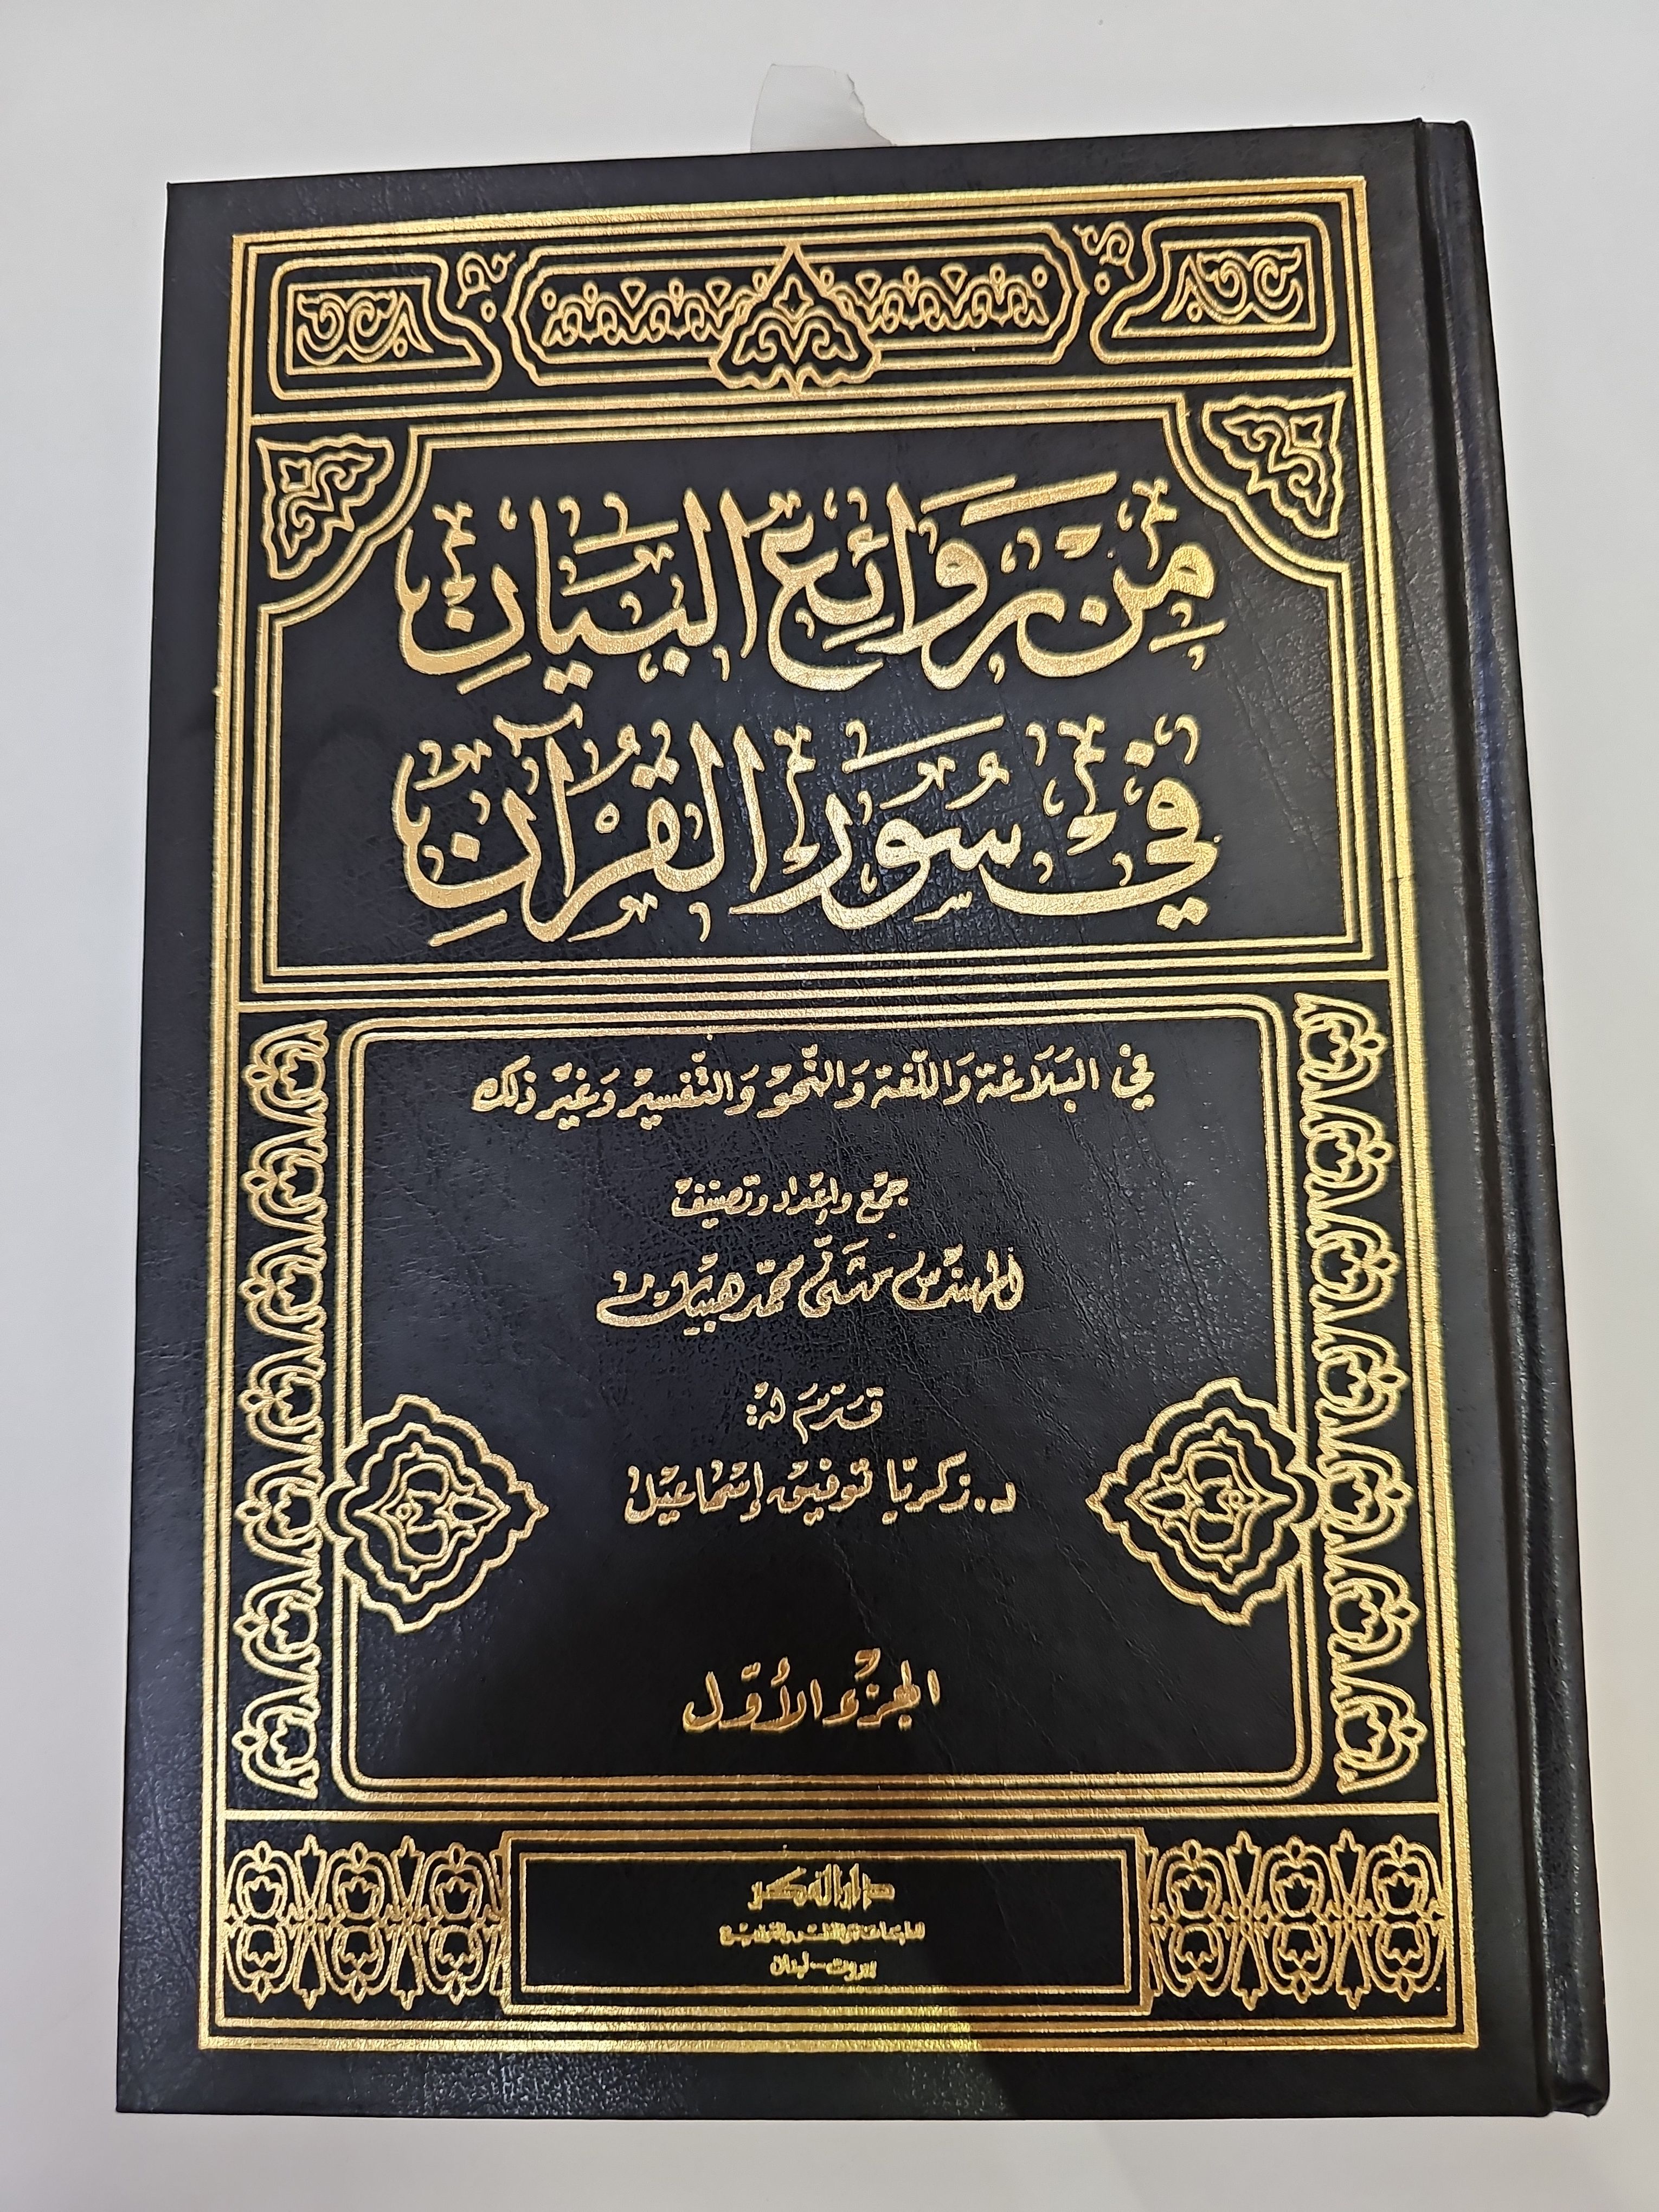 مِنْ رَوَائِعِ البَيَانِ
فِي سُوَرِ القُرْآنِ
في البَلَاغَة وَاللّغَة وَالنّحو وَالتّفسير وَغَير ذلك
جمع وإعداد وتصنيف
المهندس مثنّى محمّد هبيان
قدّم له:
د. زكريّا توفيق إسماعيل
الجزء الأوّل
دار الفكر
للطباعة والنشر والتوزيع
بيروت - لبنان